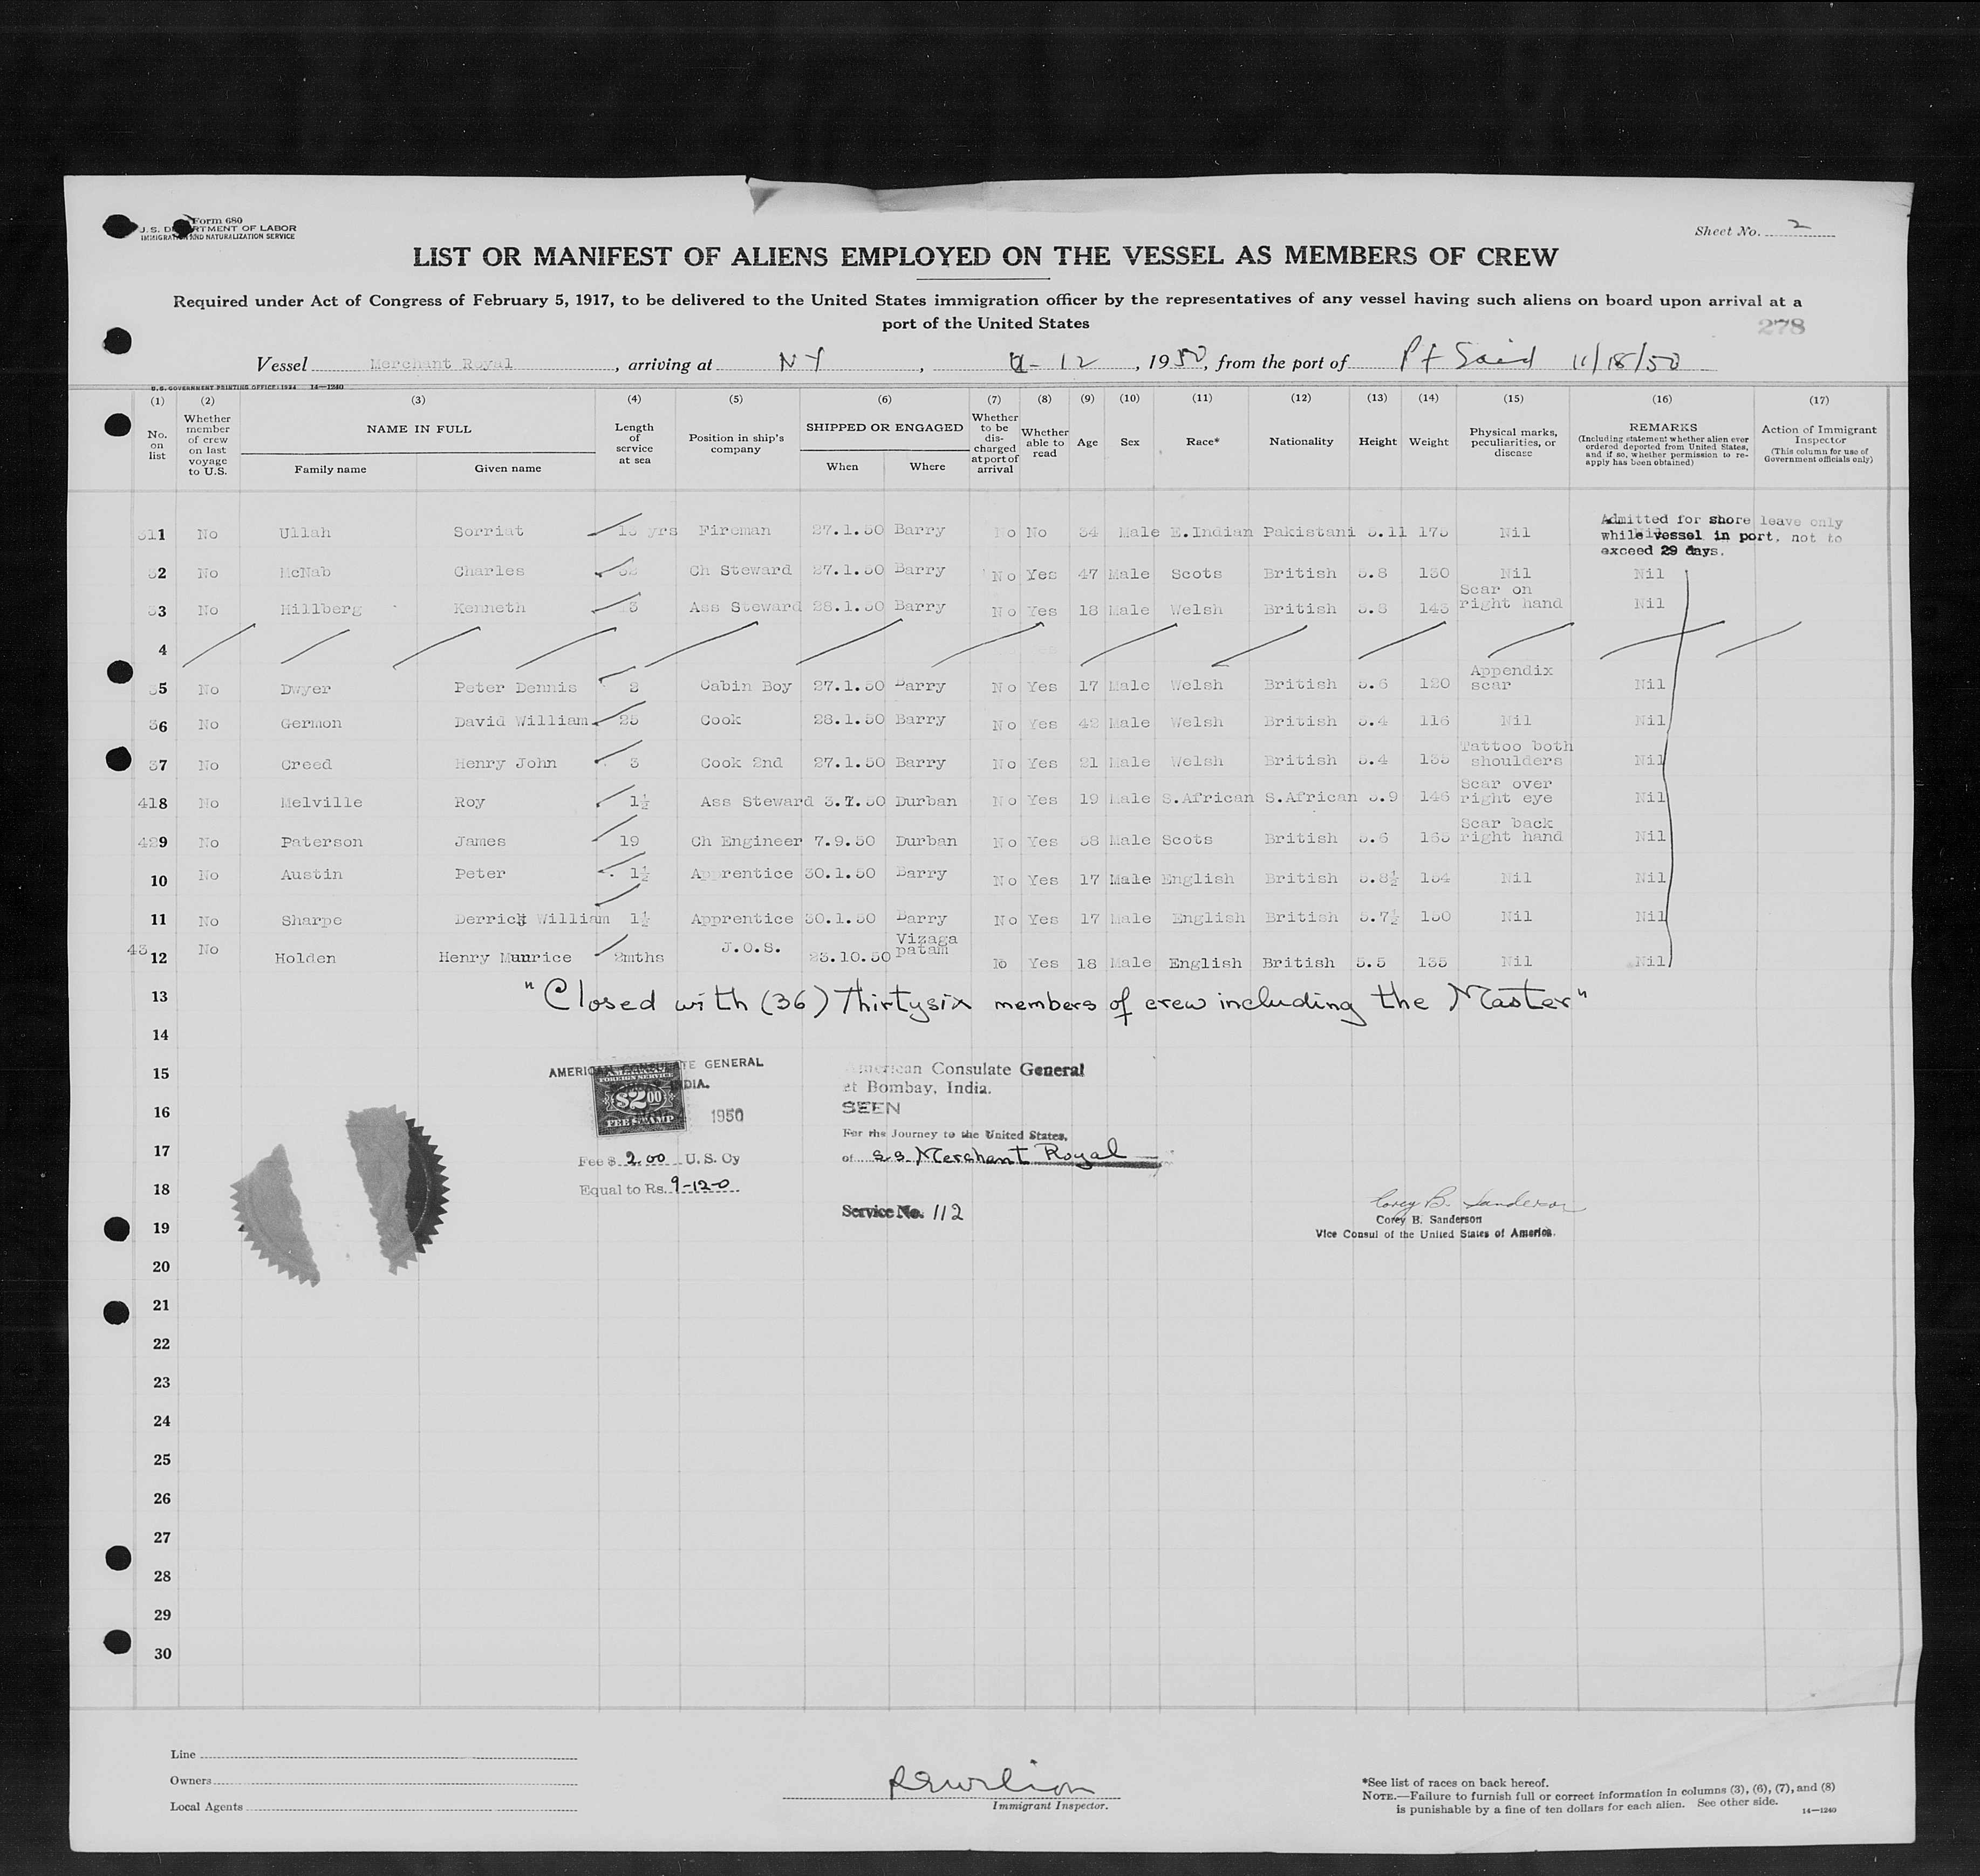 Form 680
U.S. DEPARTMENT OF LABOR
IMMIGRATION AND NATURALIZATION SERVICE
Sheet No. 2
LIST OR MANIFEST OF ALIENS EMPLOYED ON THE VESSEL AS MEMBERS OF CREW
Required under Act of Congress of February 5, 1917, to be delivered to the United States immigration officer by the representatives of any vessel having such aliens on board upon arrival at a
port of the United States
278
Vessel Merchant Royal, arriving at NY, 12, 1950, from the port of Pt Said 11/18/50
U.S. GOVERNMENT PRINTING OFFICE: 1934 14—1240
(1) (2) (3) (4) (5) (6) (7) (8) (9) (10) (11) (12) (13) (14) (15) (16) (17)
No. on list
Whether member of crew on last voyage to U.S.
NAME IN FULL
Family name Given name
Length of service at sea
Position in ship's company
SHIPPED OR ENGAGED
When Where
Whether to be discharged at port of arrival
Whether able to read
Age
Sex
Race*
Nationality
Height
Weight
Physical marks, peculiarities, or disease
REMARKS
(Including statement whether alien ever ordered deported from United States, and if so, whether permission to re-apply has been obtained)
Action of Immigrant Inspector
(This column for use of Government officials only)
Admitted for shore leave only
while vessel in port, not to
exceed 29 days.
311 No Ullah Sorriat yrs Fireman 27.1.50 Barry No No 34 Male E.Indian Pakistani 5.11 175 Nil
32 No McNab Charles Ch Steward 27.1.50 Barry No Yes 47 Male Scots British 5.8 150 Nil Nil
33 No Hillberg Kenneth 3 Ass Steward 28.1.50 Barry No Yes 18 Male Welsh British 5.8 143 Scar on right hand Nil
4
35 No Dwyer Peter Dennis 2 Cabin Boy 27.1.50 Barry No Yes 17 Male Welsh British 5.6 120 Appendix scar Nil
36 No Germon David William 25 Cook 28.1.50 Barry No Yes 42 Male Welsh British 5.4 116 Nil Nil
37 No Creed Henry John 3 Cook 2nd 27.1.50 Barry No Yes 21 Male Welsh British 5.4 135 Tattoo both shoulders Nil
418 No Melville Roy 1½ Ass Steward 3.7.50 Durban No Yes 19 Male S.African S.African 5.9 146 Scar over right eye Nil
429 No Paterson James 19 Ch Engineer 7.9.50 Durban No Yes 58 Male Scots British 5.6 165 Scar back right hand Nil
10 No Austin Peter 1½ Apprentice 30.1.50 Barry No Yes 17 Male English British 5.8½ 154 Nil Nil
11 No Sharpe Derrick William 1½ Apprentice 30.1.50 Barry No Yes 17 Male English British 5.7½ 150 Nil Nil
43 12 No Holden Henry Maurice 2mths J.O.S. 23.10.50 Vizagapatam No Yes 18 Male English British 5.5 135 Nil Nil
13 "Closed with (36) Thirtysix members of crew including the Master"
14
15
16
17
18
19
20
21
22
23
24
25
26
27
28
29
30
AMERICAN CONSULATE GENERAL
BOMBAY, INDIA.
1950
AMERICAN
FOREIGN SERVICE
$2.00
FEE STAMP
Fee $ 2.00 U.S. Cy
Equal to Rs. 9-12-0
American Consulate General
at Bombay, India.
SEEN
For the Journey to the United States,
of s.s. Merchant Royal
Service No. 112
Corey B. Sanderson
Corey B. Sanderson
Vice Consul of the United States of America.
Line
Owners
Local Agents
Immigrant Inspector.
*See list of races on back hereof.
NOTE.—Failure to furnish full or correct information in columns (3), (6), (7), and (8)
is punishable by a fine of ten dollars for each alien. See other side.
14—1240